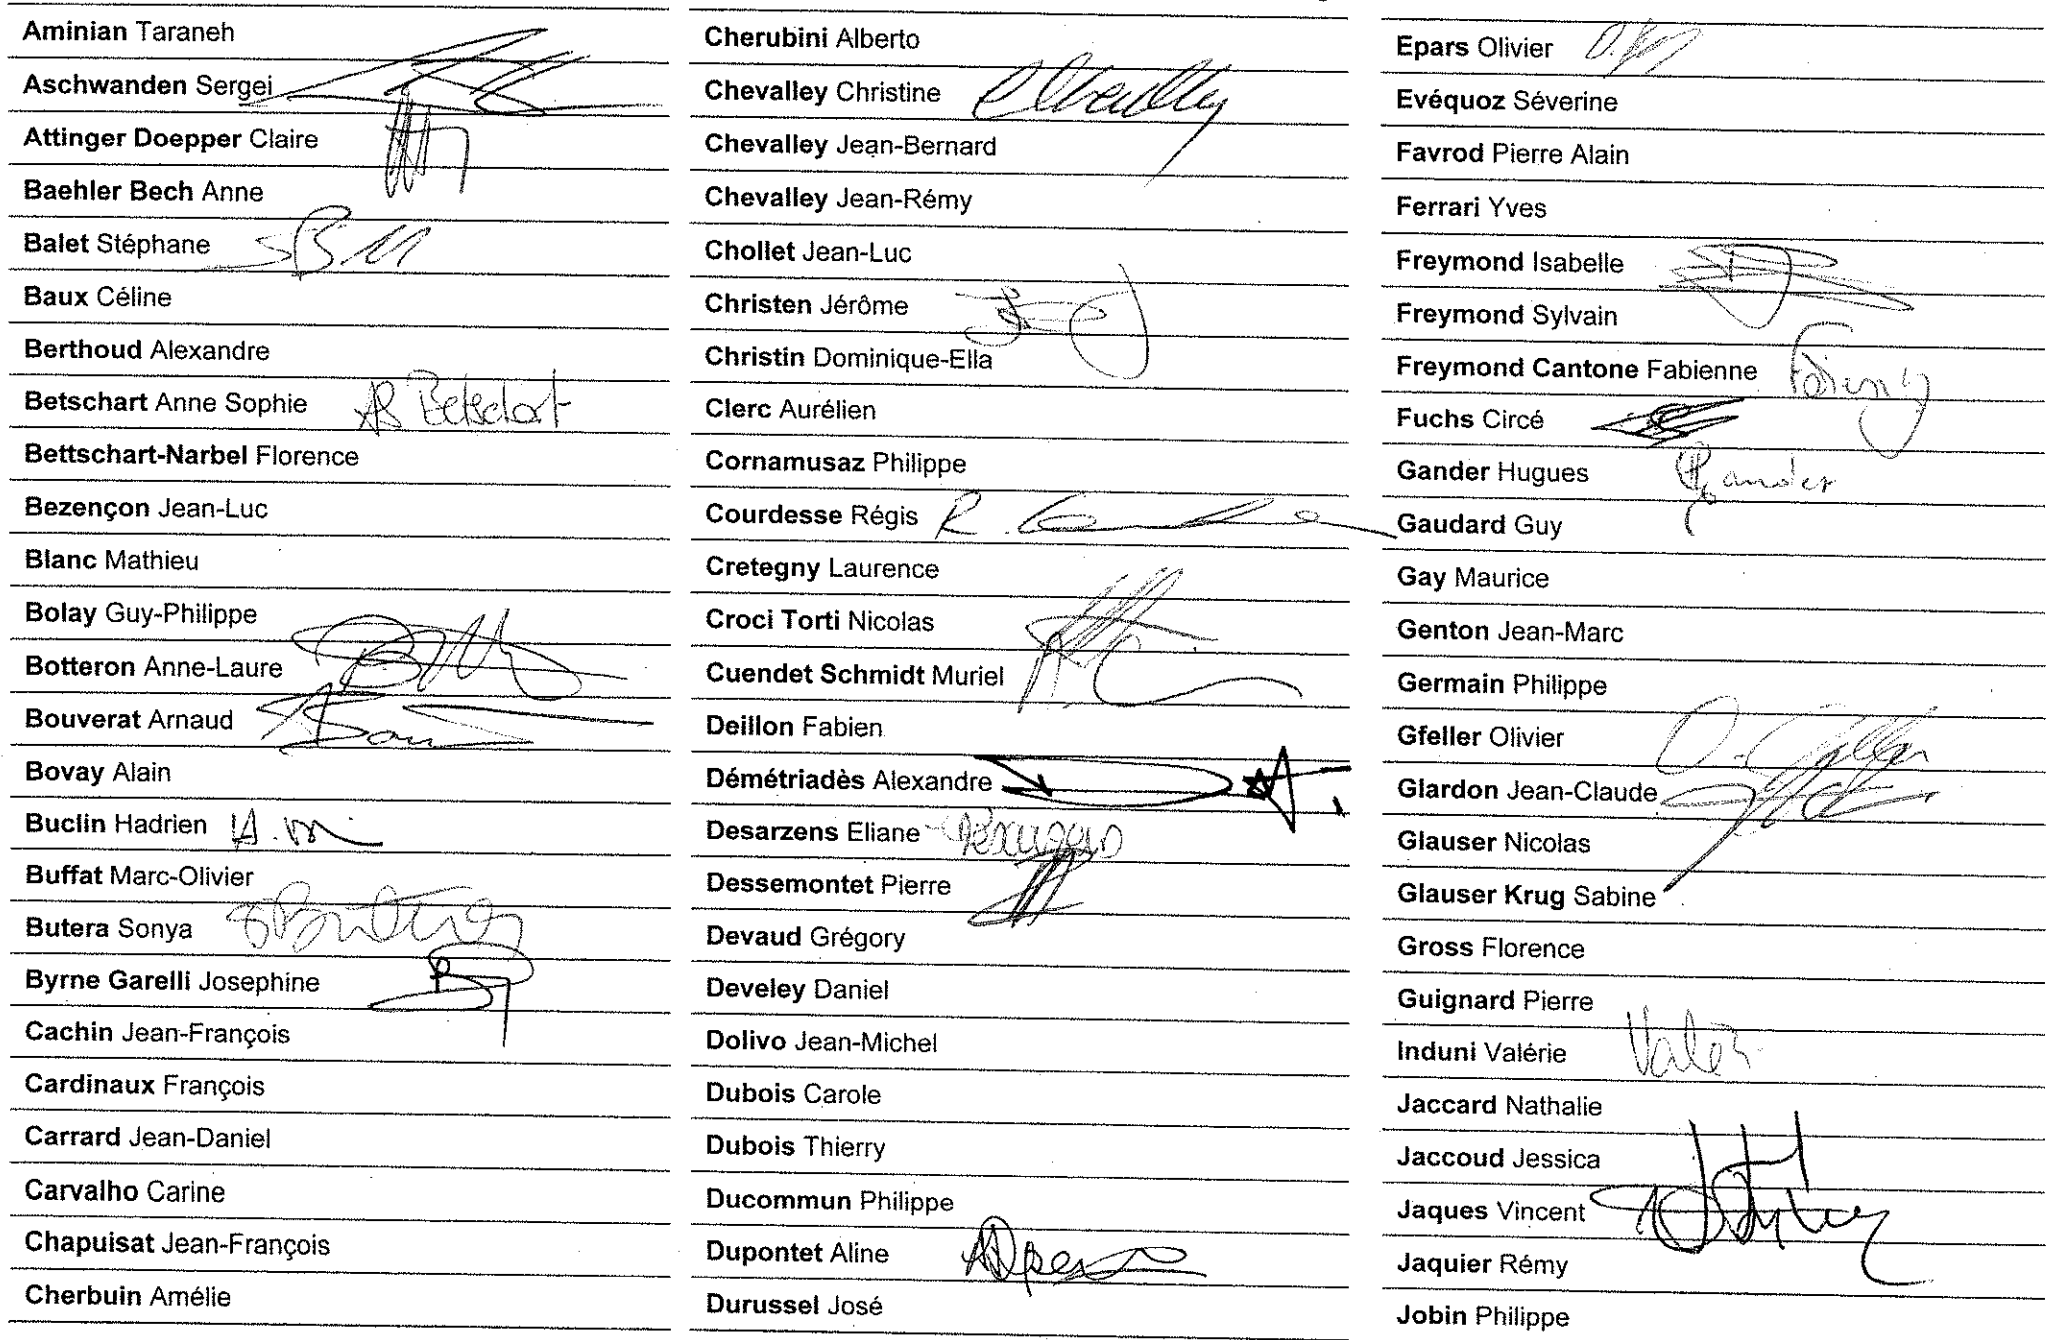 Aminian Taraneh
Aschwanden Sergei
Attinger Doepper Claire
Baehler Bech Anne
Balet Stéphane SBM
Baux Céline
Berthoud Alexandre
Betschart Anne Sophie AS Betschart
Bettschart-Narbel Florence
Bezençon Jean-Luc
Blanc Mathieu
Bolay Guy-Philippe
Botteron Anne-Laure
Bouverat Arnaud
Bovay Alain
Buclin Hadrien
Buffat Marc-Olivier
Butera Sonya SButera
Byrne Garelli Josephine
Cachin Jean-François
Cardinaux François
Carrard Jean-Daniel
Carvalho Carine
Chapuisat Jean-François
Cherbuin Amélie
Cherubini Alberto
Chevalley Christine CChevalley
Chevalley Jean-Bernard
Chevalley Jean-Rémy
Chollet Jean-Luc
Christen Jérôme
Christin Dominique-Ella
Clerc Aurélien
Cornamusaz Philippe
Courdesse Régis R.
Cretegny Laurence
Croci Torti Nicolas
Cuendet Schmidt Muriel
Deillon Fabien
Démétriadès Alexandre
Desarzens Eliane
Dessemontet Pierre
Devaud Grégory
Develey Daniel
Dolivo Jean-Michel
Dubois Carole
Dubois Thierry
Ducommun Philippe
Dupontet Aline
Durussel José
Epars Olivier
Evéquoz Séverine
Favrod Pierre Alain
Ferrari Yves
Freymond Isabelle
Freymond Sylvain
Freymond Cantone Fabienne
Fuchs Circé
Gander Hugues Gander
Gaudard Guy
Gay Maurice
Genton Jean-Marc
Germain Philippe
Gfeller Olivier O. Gfeller
Glardon Jean-Claude
Glauser Nicolas
Glauser Krug Sabine
Gross Florence
Guignard Pierre
Induni Valérie
Jaccard Nathalie
Jaccoud Jessica
Jaques Vincent
Jaquier Rémy
Jobin Philippe